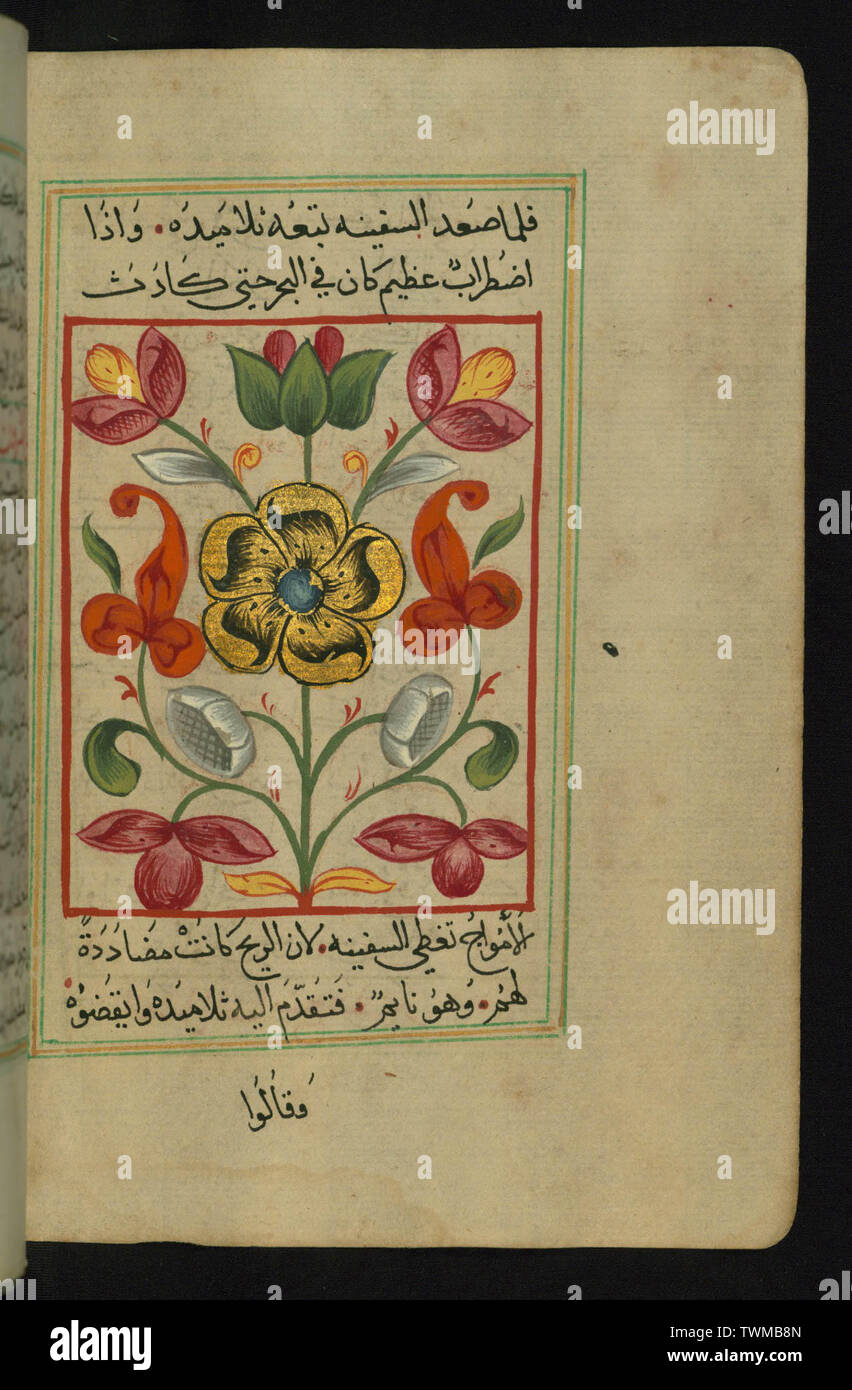 فلما صَعد السفينه تبعَه تلاميدَه • وَاذَا
اضْطرابٌ عظيم كان في البحر حتى كَادَتْ
الأمْواجُ تغطي السفينه • لان الريح كَانَتْ مضَادَدَةً
لهم • وَهوَ نايمٌ • فَتَقَدّمَ اليه تلاميدَه وَايقَضَوْهُ •
وَقالُوا
a
alamy
alamy
Image ID: TWMB8N
www.alamy.com